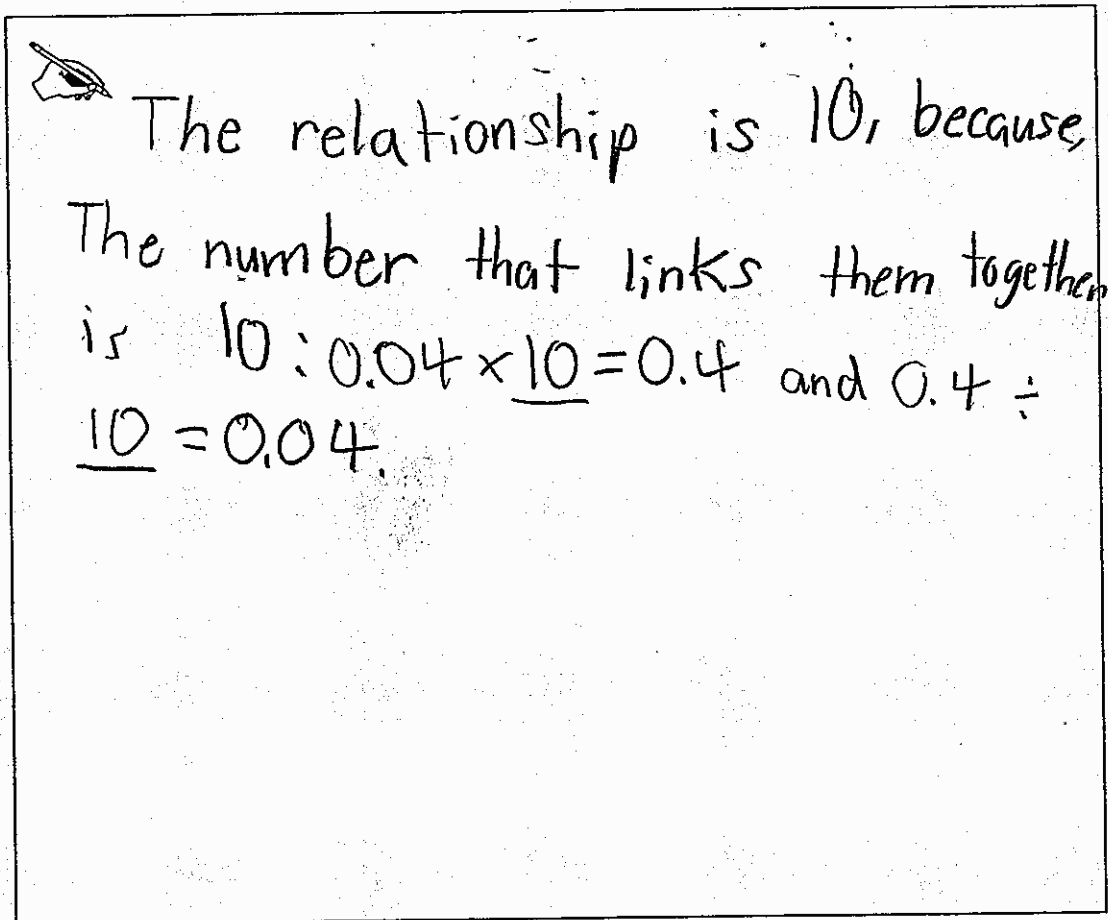 The relationship is 10, because,
The number that links them together
is 10 : 0.04 × 10 = 0.4 and 0.4 ÷
10 = 0.04.